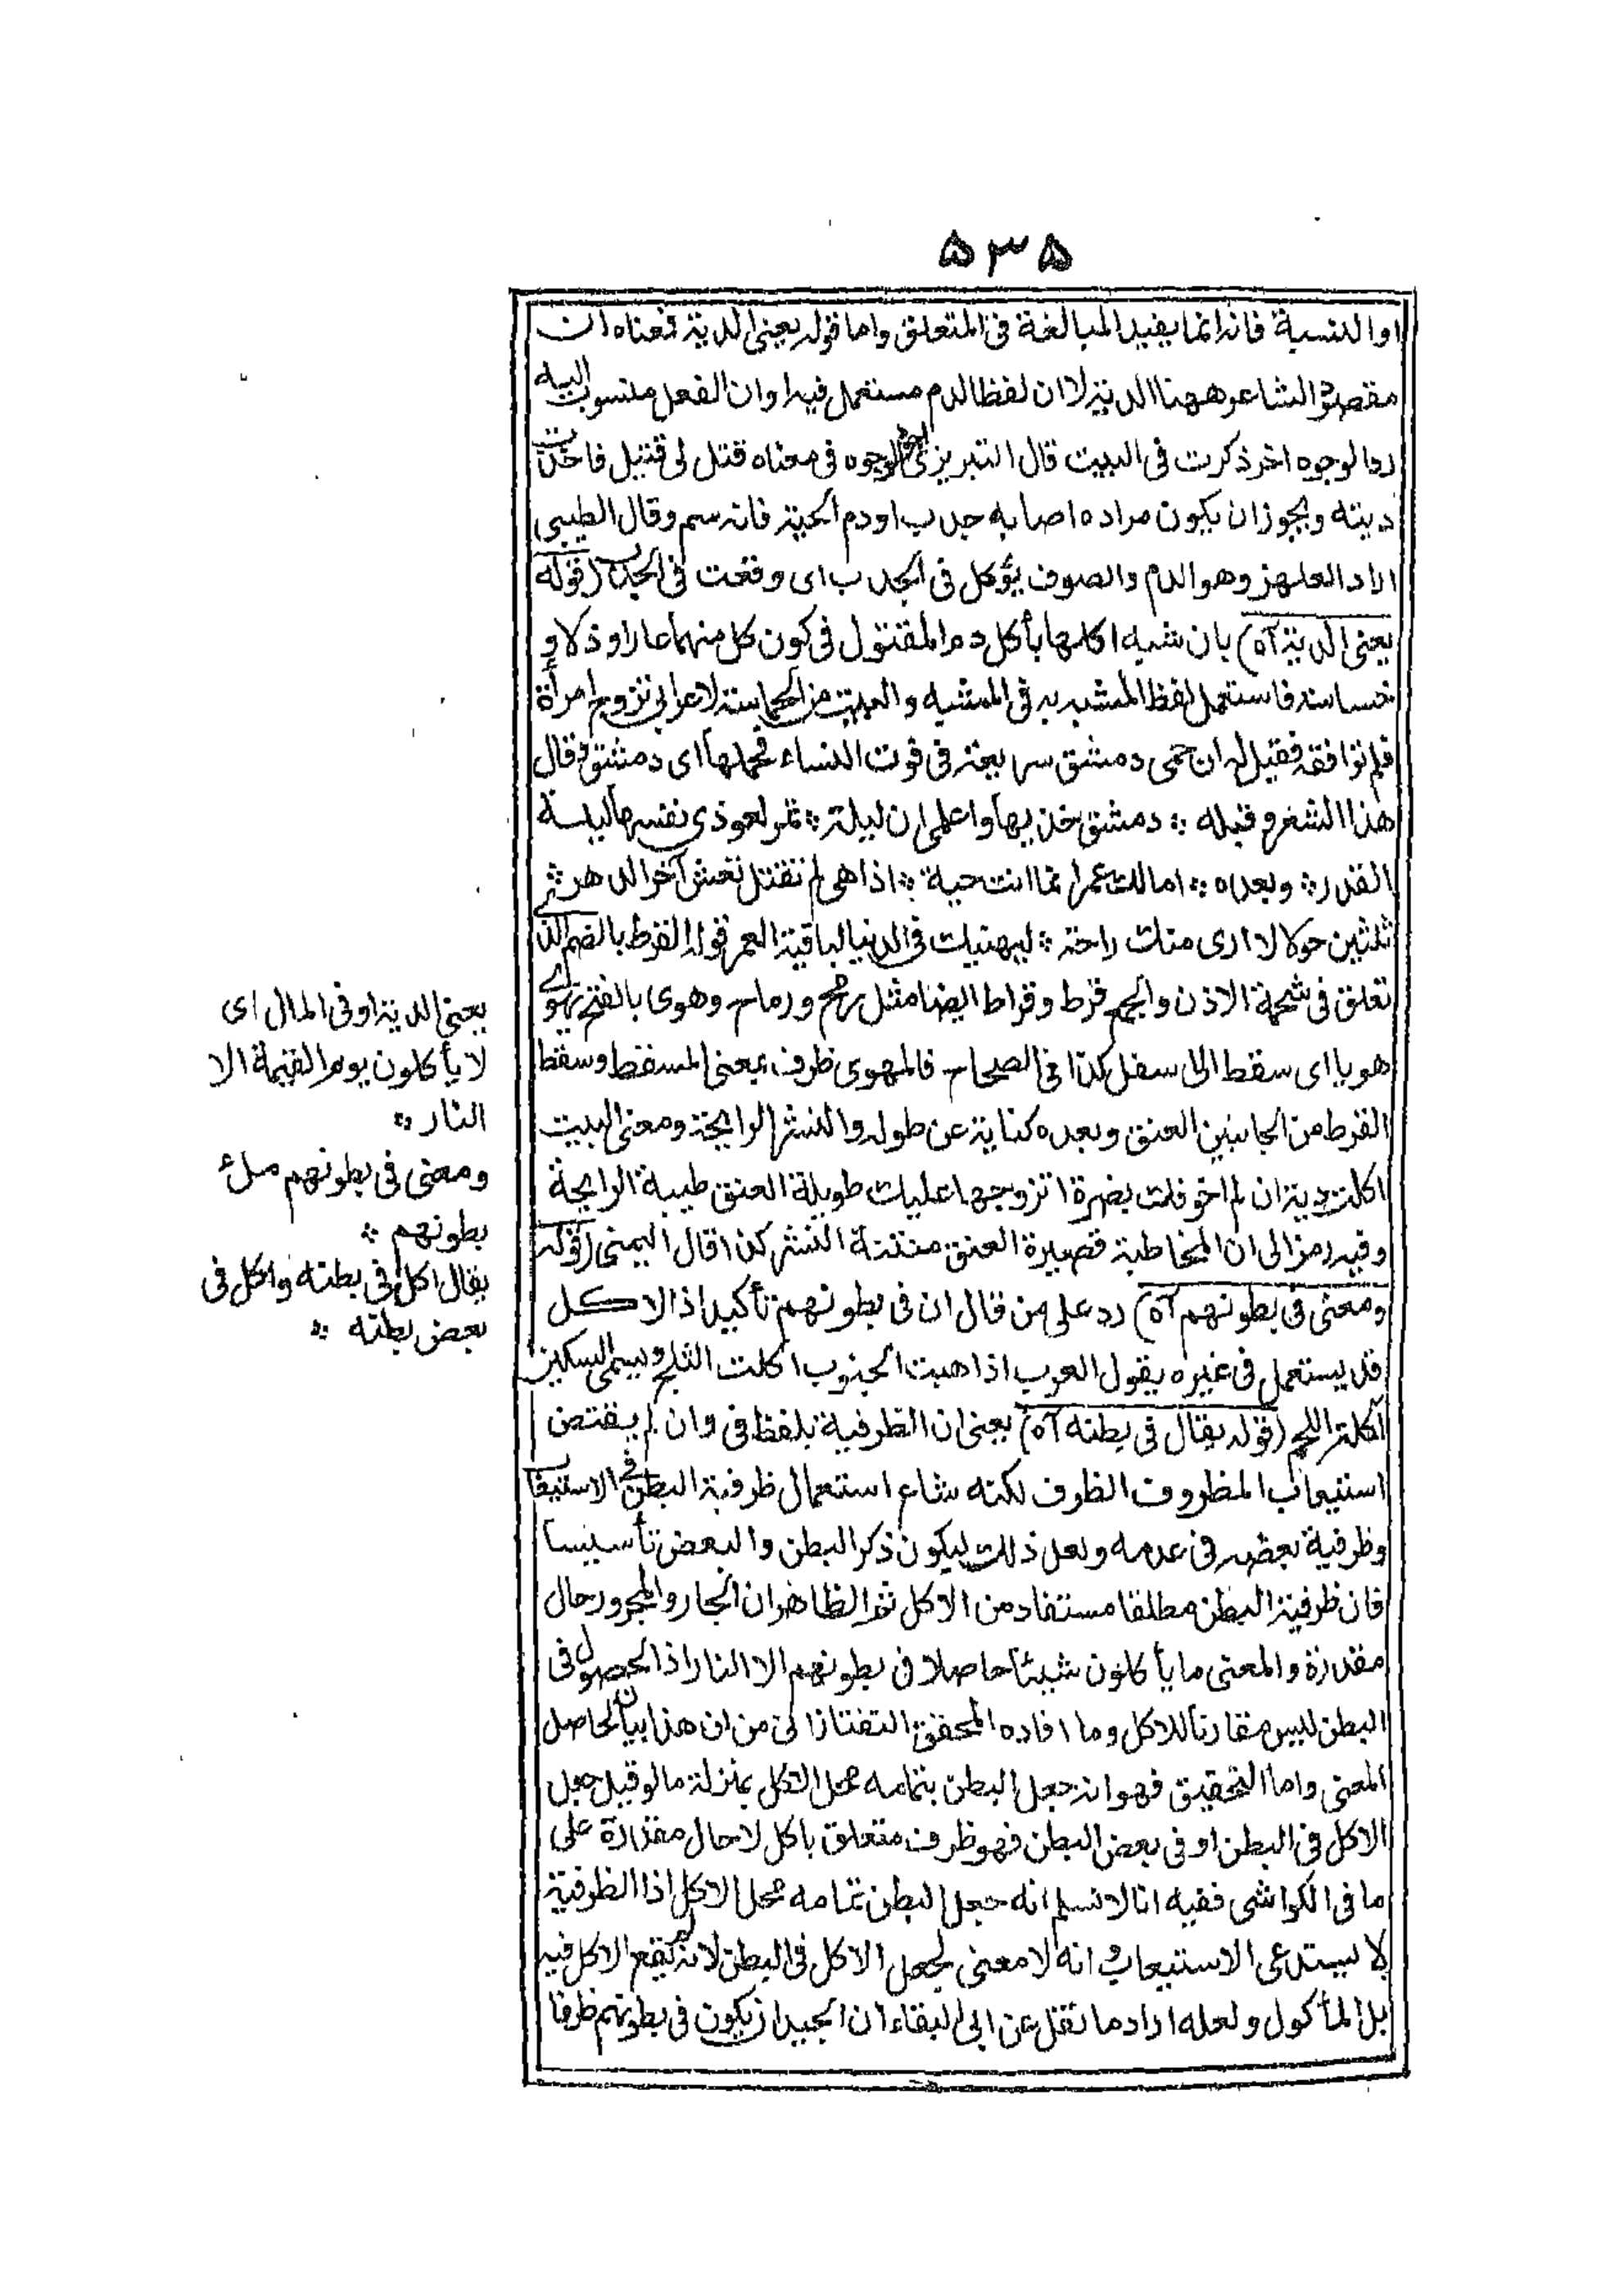 ۵۳۵
او النسبة فانه انما يفيد المبالغة فى المتعلق واما قوله يعنى الدية فمعناه ان
مقصود الشاعر ههنا الدية لا ان لفظ الدم مستعمل فيها وان الفعل منسوب اليه
والوجوه اخر ذكرت فى البيت قال التبريزى الوجوه فى معناه قتل لى قتيل فاخذت
ديته ويجوز ان يكون مراده اصابه جدب او دم الحية فانه سم وقال الطيبى
اراد العلهز وهو الدم والصوف يؤكل فى الجدب اى وقعت فى الجدب (قوله
يعنى الدية آه) بان شبه اكلها بأكل دم المقتول فى كون كل منهما عارا وذلا و
خساسة فاستعمل لفظ المشبه به فى المشبه والبيت من الحماسة لاعرابى تزوج امرأة
فلم توافقه فقيل له ان حمى دمشق سريعة فى قوت النساء فحملها اى دمشق وقال
هذا الشعر وقبله ؞ دمشق خذيها واعلمى ان ليلة ؞ تمر لعوذى نفسها ليلة
القدر ؞ وبعده ؞ امالك عمر انما انت حية ؞ اذا هى لم تقتل تعش آخر الدهر ؞
ثلثين حولا لا ارى منك راحة ؞ ليهنيك فى الدنيا لباقية العمر قوله القرط بالضم الذى
تعلق فى شحمة الاذن والجمع قرط وقراط ايضا مثل رمح ورماح وهوى بالفتح يهوى
هويا اى سقط الى سفل كذا فى الصحاح فالمهوى ظرف بمعنى المسقط وسقط
القرط من الجانبين العنق وبعده كناية عن طوله والنشر الرايحة ومعنى البيت
اكلت دية ان لم اخوفك بضرة اتزوجها عليك طويلة العنق طيبة الرايحة
وفيه رمز الى ان المخاطبة قصيرة العنق منتنة النشر كذا قال اليمنى (قوله
ومعنى فى بطونهم آه) رد على من قال ان فى بطونهم تأكيد اذ الاكل
قد يستعمل فى غيره يقول العرب اذا هبت الجنوب اكلت الثلج ويسمى السكين
آكلة اللحم (قوله يقال فى بطنه آه) يعنى ان الظرفية بلفظ فى وان لم يقتض
استيعاب المظروف الظرف لكنه شاع استعمال ظرفية البطن فى الاستيعاب
وظرفية بعضه فى عدمه ولعل ذلك ليكون ذكر البطن والبعض تأسيسا
فان ظرفية البطن مطلقا مستفاد من الاكل ثم الظاهر ان الجار والمجرور حال
مقدرة والمعنى ما يأكلون شيئا حاصلا فى بطونهم الا النار اذ الحصول فى
البطن ليس مقارنا للاكل وما افاده المحقق التفتازانى من ان هذا بيان لحاصل
المعنى واما التحقيق فهو انه جعل البطن بتمامه محل الاكل بمنزلة ما لو قيل جعل
الاكل فى البطن او فى بعض البطن فهو ظرف متعلق باكل لا حال مقدرة على
ما فى الكواشى ففيه انا لا نسلم انه جعل البطن بتمامه محل الاكل اذا الظرفية
لا يستدعى الاستيعاب وانه لا معنى لجعل الاكل فى البطن لانه لم يقع الاكل فيه
بل المأكول ولعله اراد ما نقل عن ابى البقاء ان الجيد ان يكون فى بطونهم ظرفا
يعنى الدية او فى المال اى
لا يأكلون يوم القيمة الا
النار ؞
ومعنى فى بطونهم ملء
بطونهم ؞
يقال اكل فى بطنه واكل فى
بعض بطنه ؞